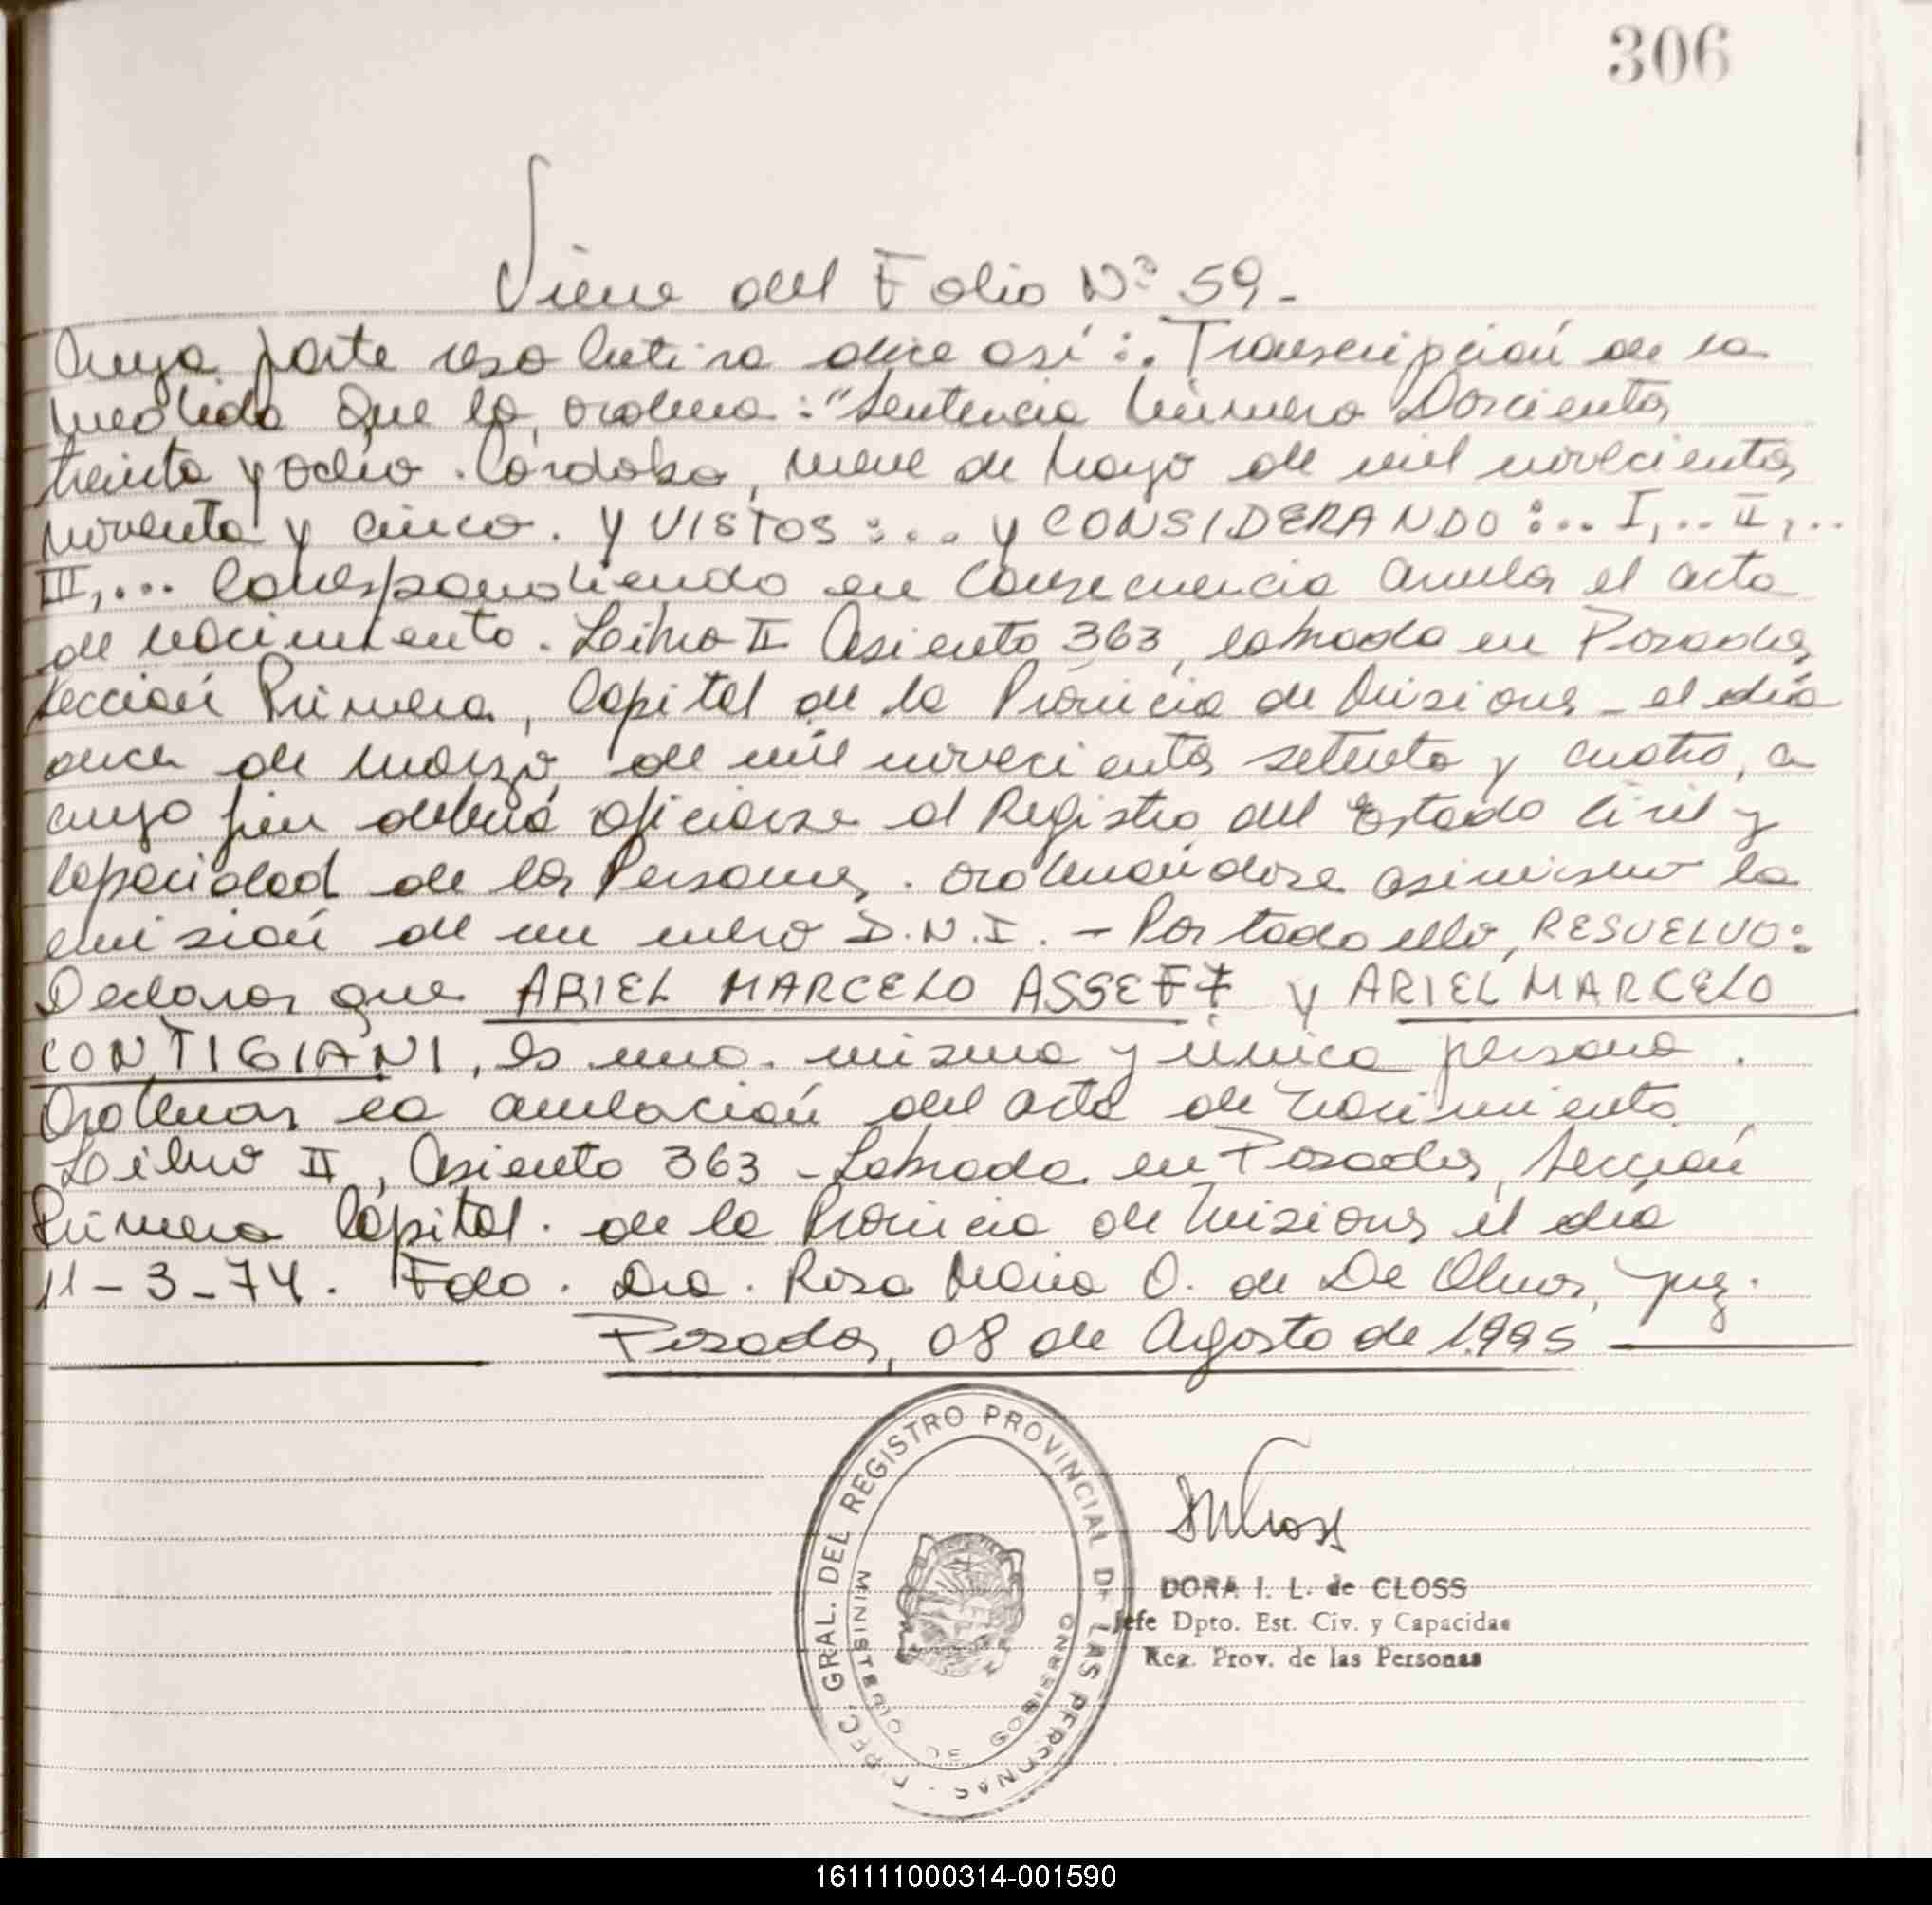 306
Viene del Folio Nº 59.-
Cuya parte resolutiva dice así:. Transcripción de la
medida que lo ordena: "Sentencia Número Doscientos
treinta y ocho. Córdoba, nueve de Mayo de mil novecientos
noventa y cinco. Y VISTOS:... y CONSIDERANDO:... I,... II,...
III,... Correspondiendo en consecuencia anular el acta
de nacimiento. Libro II Asiento 363, labrada en Posadas,
Sección Primera, Capital de la Provincia de Misiones - el día
once de marzo, de mil novecientos setenta y cuatro, a
cuyo fin deberá oficiarse al Registro del Estado Civil y
Capacidad de las Personas. ordenándose asimismo la
emisión de un nuevo D.N.I. - Por todo ello, RESUELVO:
Declarar que ARIEL MARCELO ASSEFF y ARIEL MARCELO
CONTIGIANI, es una misma y única persona.
Ordenar la anulación del acta de nacimiento
Libro II, Asiento 363 - Labrada en Posadas, Sección
Primera Capital. de la Provincia de Misiones el día
11-3-74. Fdo. Dra. Rosa María O. de De Olmos, Juez.
Posadas, 08 de Agosto de 1.995
GRAL. DEL REGISTRO PROVINCIAL DE LAS PERSONAS
MINISTERIO DE GOBIERNO
DORA I. L. de CLOSS
Jefe Dpto. Est. Civ. y Capacidad
Reg. Prov. de las Personas
161111000314-001590